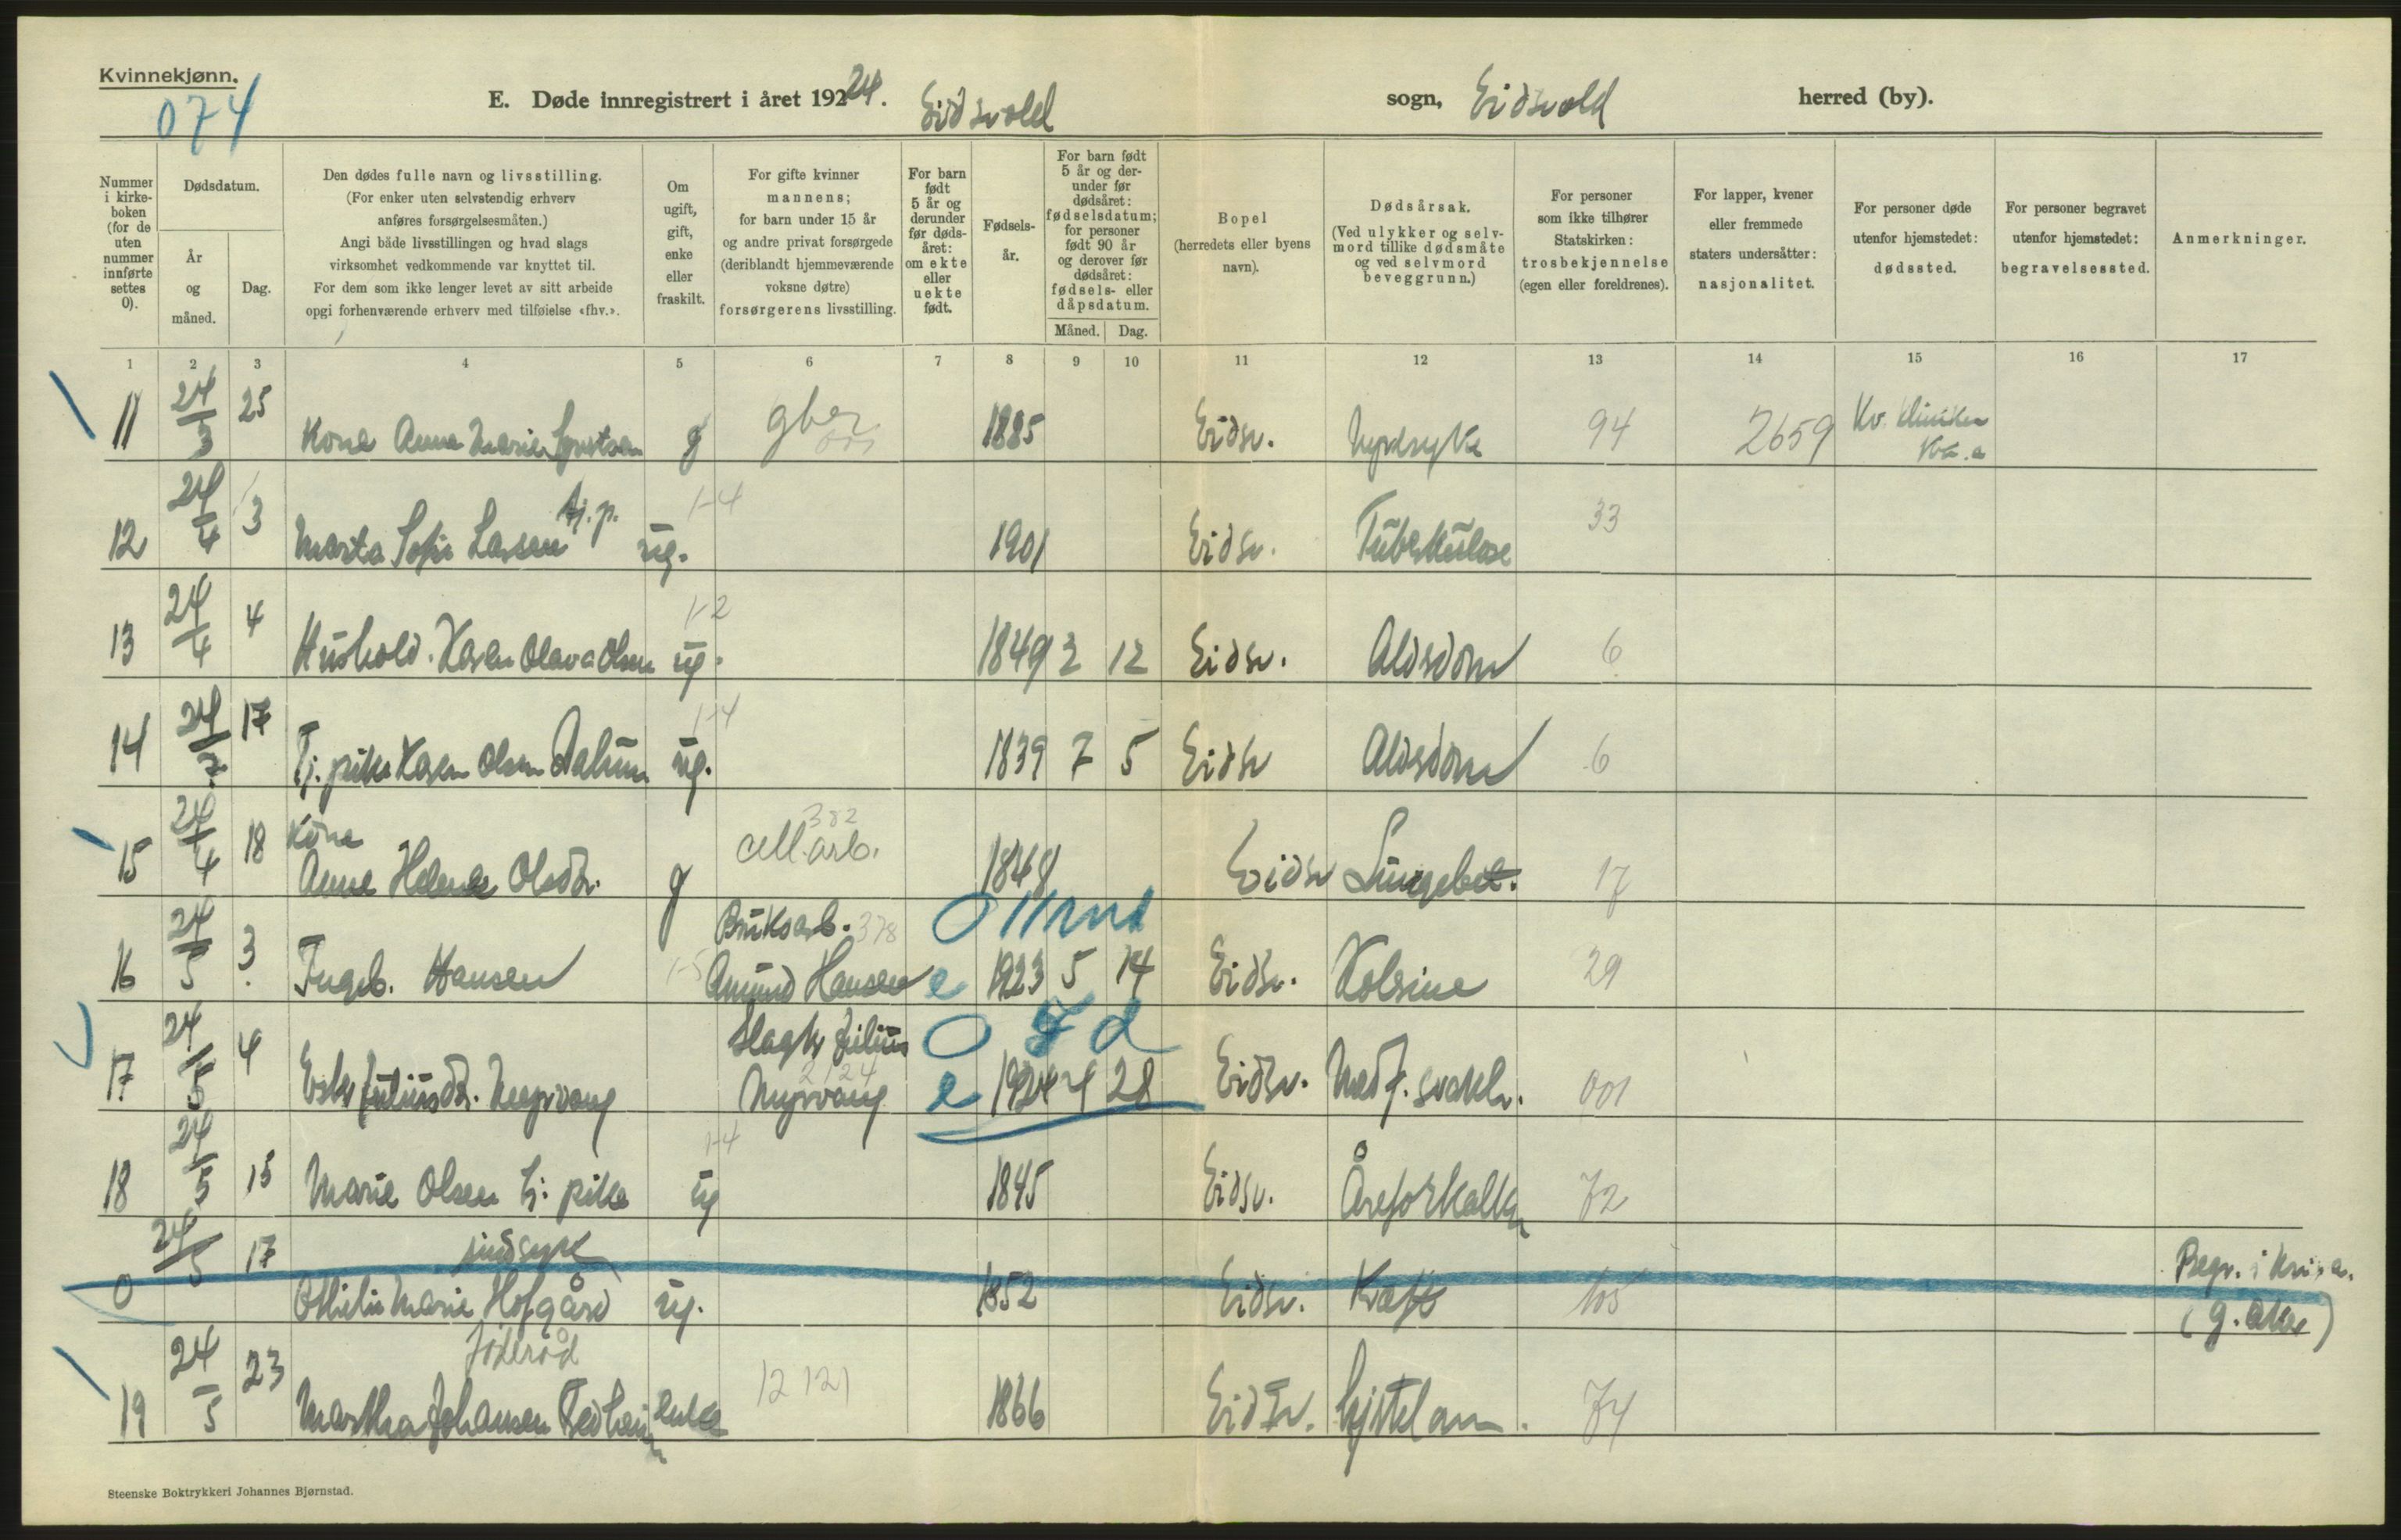 Kvinnekjønn.
074
E. Døde innregistrert i året 1924. Eidsvold sogn, Eidsvold herred (by).
Nummer i kirke-boken (for de uten nummer innførte settes 0).
Dødsdatum.
År og måned.
Dag.
Den dødes fulle navn og livsstilling.
(For enker uten selvstendig erhverv
anføres forsørgelsesmåten.)
Angi både livsstillingen og hvad slags
virksomhet vedkommende var knyttet til.
For dem som ikke lenger levet av sitt arbeide
opgi forhenværende erhverv med tilføielse «fhv.».
Om
ugift,
gift,
enke
eller
fraskilt.
For gifte kvinner
mannens;
for barn under 15 år
og andre privat forsørgede
(deriblandt hjemmeværende
voksne døtre)
forsørgerens livsstilling.
For barn
født
5 år og
derunder
før døds-
året:
om ekte
eller
uekte
født.
Fødsels-
år.
For barn født
5 år og der-
under før
dødsåret:
fødselsdatum;
for personer
født 90 år
og derover før
dødsåret:
fødsels- eller
dåpsdatum.
Måned. Dag.
Bopel
(herredets eller byens
navn).
Dødsårsak.
(Ved ulykker og selv-
mord tillike dødsmåte
og ved selvmord
beveggrunn.)
For personer
som ikke tilhører
Statskirken:
trosbekjennelse
(egen eller foreldrenes).
For lapper, kvener
eller fremmede
staters undersåtter:
nasjonalitet.
For personer døde
utenfor hjemstedet:
dødssted.
For personer begravet
utenfor hjemstedet:
begravelsessted.
Anmerkninger.
1 2 3 4 5 6 7 8 9 10 11 12 13 14 15 16 17
11 24/3 25 Kone Anna Marie g gber 1885 Eidsv. Nyresyke 94 2659 Kv. kliniken Kr.a
12 24/4 3 Marta Sofie Larsen tj.p. ug. 1-4 1901 Eidsv. Tuberkulose 33
13 24/4 4 Hushold. Karen Olava Olsen ug. 1-2 1849 2 12 Eidsv. Aldersdom 6
14 24 17 Tj. pike Karen Olsen Dalum ug. 1-4 1839 7 5 Eidsv Aldersdom 6
15 24/4 18 Kone
Anne Helene Olsdtr. g cell.arb. 382 1848 Eidsv Lungebet. 17
16 24/5 3 Ingeb. Hansen Bruksarb. 378
1-5 Amund Hansen e 1923 5 14 Eidsv. Kolerine 29
17 24/5 4 Ester Juliusdtr. Myrvang Slagtr Julius
2124 Myrvang e 1924 4 28 Eidsv. Medf. svakh. 001
0 7 d
18 24/5 15 Marie Olsen tj. pike ug 1-4 1845 Eidsv. Åreforkalkn 72
0 24/5 17 sindsyk
Othilie Marie Hofgård ug. 1852 Eidsv. Kræft 105 Begr. i Kri.a.
(g. Aker)
19 24/5 23
Martha Johansen Fedheim enke 12121 1866 Eidsv. Hjertelam. 74
Steenske Boktrykkeri Johannes Bjørnstad.